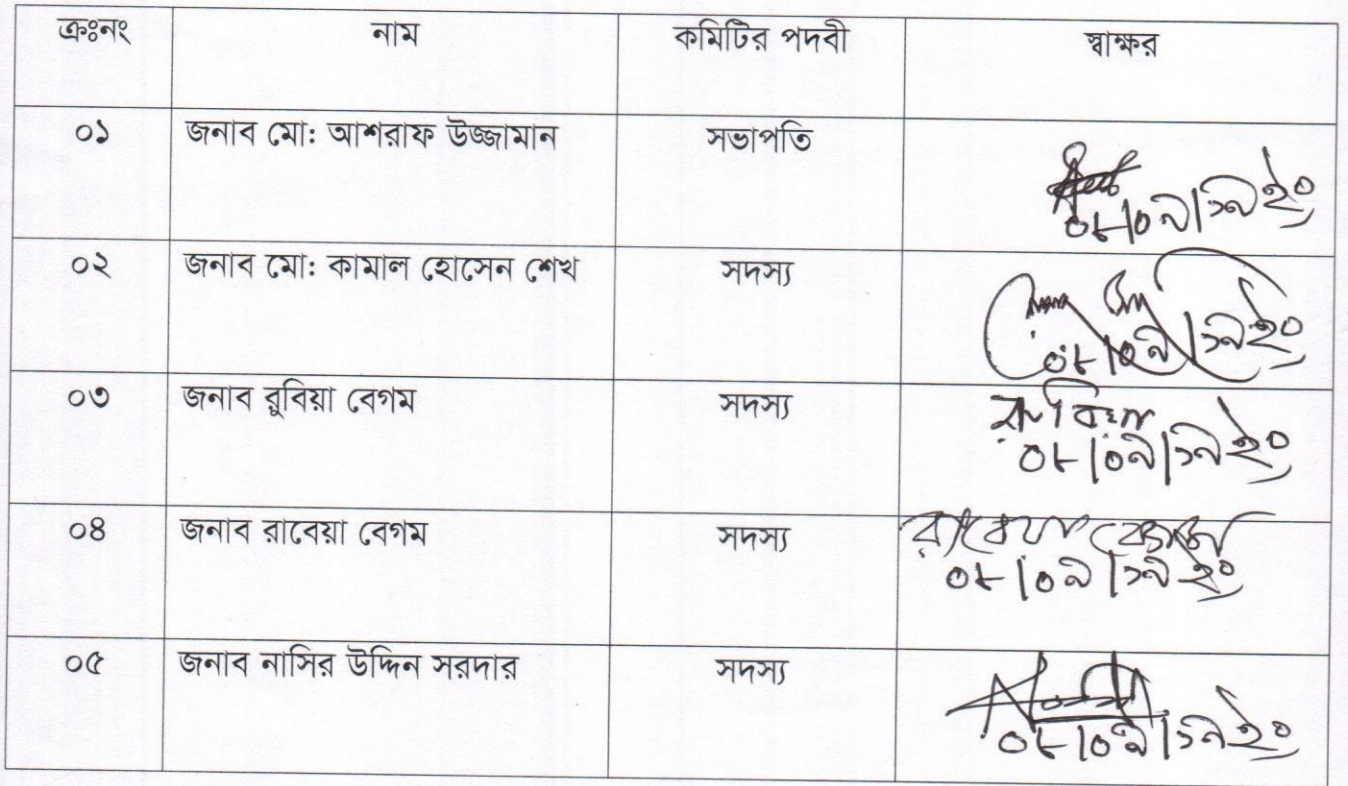 ক্রঃনং নাম কমিটির পদবী স্বাক্ষর
০১ জনাব মো: আশরাফ উজ্জামান সভাপতি
০৮/০৯/১৯ ইং
০২ জনাব মো: কামাল হোসেন শেখ সদস্য
০৮/০৯/১৯ ইং
০৩ জনাব রুবিয়া বেগম সদস্য রুবিয়া
০৮/০৯/১৯ ইং
০৪ জনাব রাবেয়া বেগম সদস্য রাবেয়া বেগম
০৮/০৯/১৯ ইং
০৫ জনাব নাসির উদ্দিন সরদার সদস্য
০৮/০৯/১৯ ইং